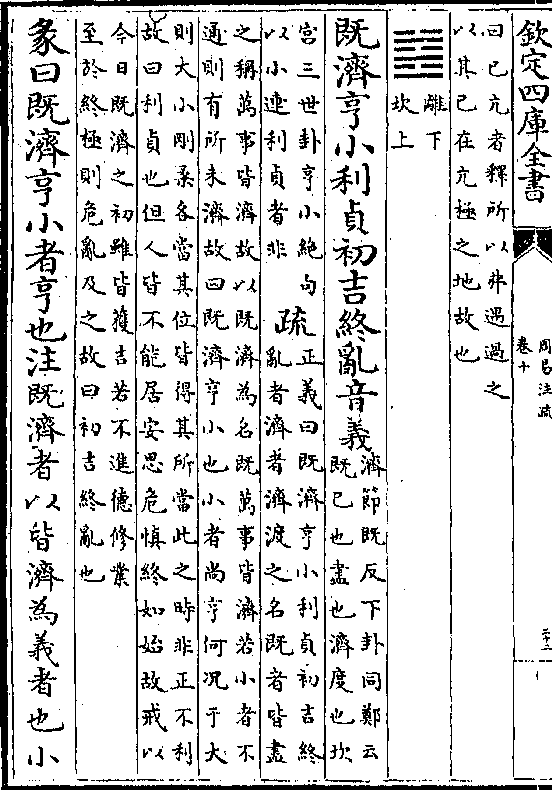 欽定四庫全書
周易注疏
卷十
曰已亢者釋所以弗遇過之
以其已在亢極之地故也
離下
坎上
既濟亨小利貞初吉終亂音義
濟節既反下卦同鄭云
既已也盡也濟度也坎
宮三世卦亨小絶句
以小連利貞者非
疏
正義曰既濟亨小利貞初吉終
亂者濟者濟渡之名既者皆盡
之稱萬事皆濟故以既濟為名既萬事皆濟若小者不
通則有所未濟故曰既濟亨小也小者尚亨何况于大
則大小剛柔各當其位皆得其所當此之時非正不利
故曰利貞也但人皆不能居安思危慎終如始故戒以
今日既濟之初雖皆獲吉若不進德修業
至於終極則危亂及之故曰初吉終亂也
彖曰既濟亨小者亨也注既濟者以皆濟為義者也小